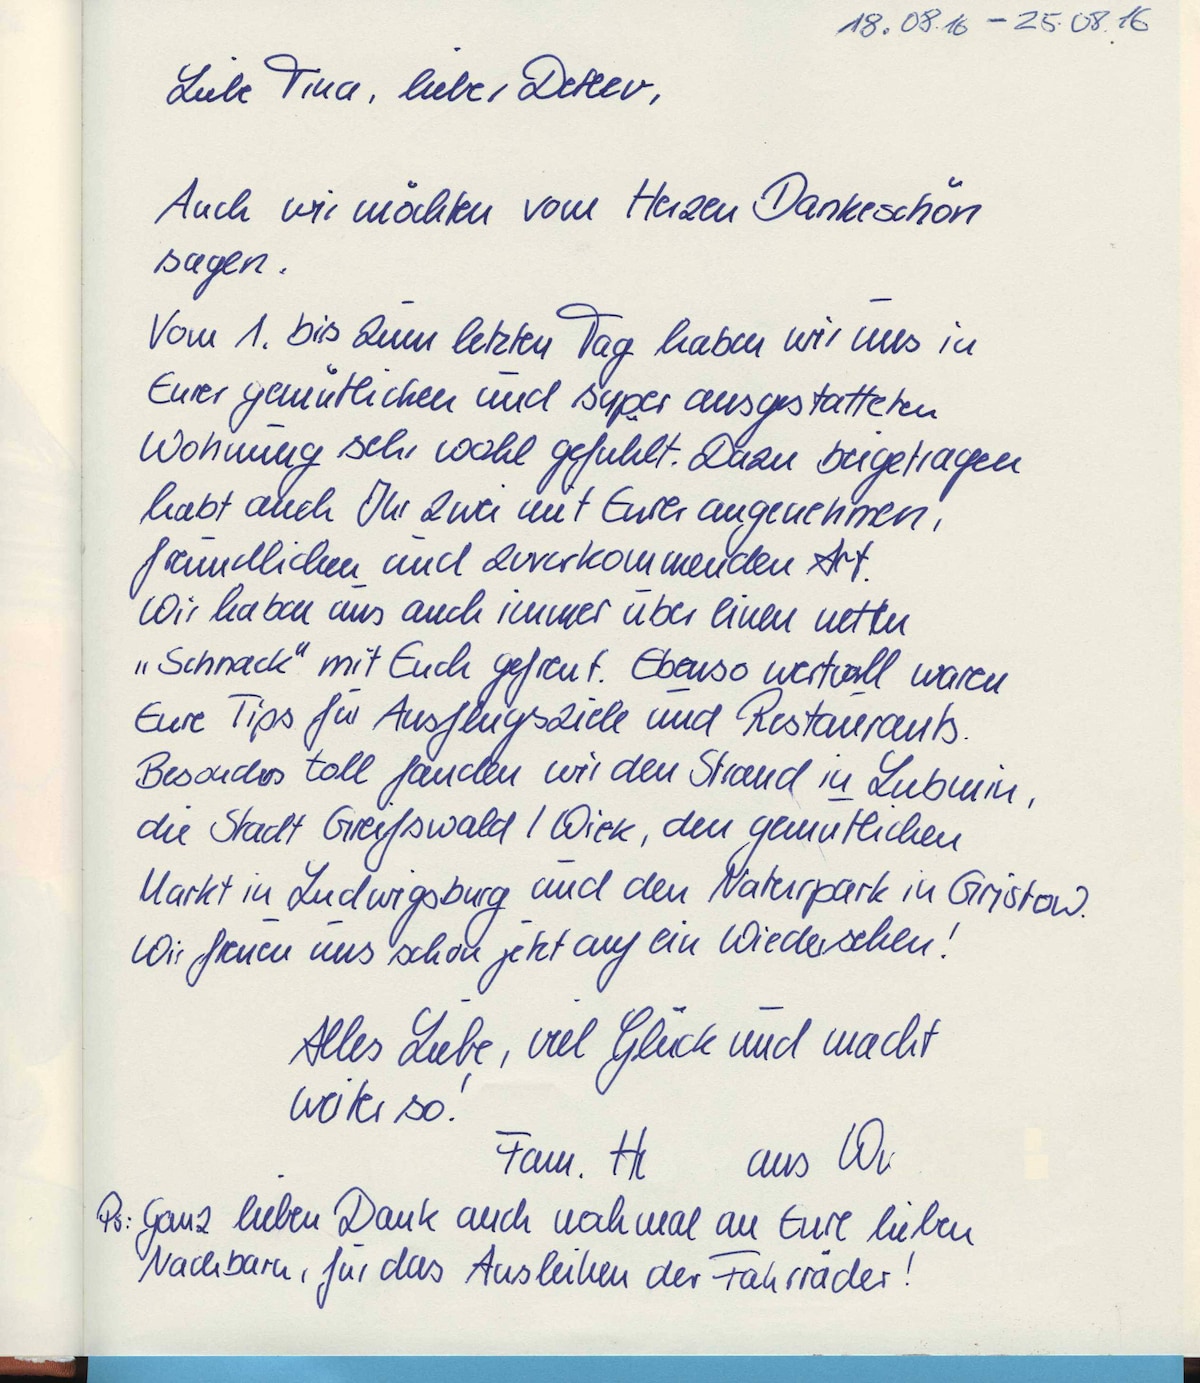 18.08.16 – 25.08.16
Liebe Tina, lieber Detlev,
Auch wir möchten vom Herzen Dankeschön
sagen.
Vom 1. bis zum letzten Tag haben wir uns in
Eurer gemütlichen und super ausgestatteten
Wohnung sehr wohl gefühlt. Dazu beigetragen
habt auch Ihr zwei mit Eurer angenehmen,
freundlichen und zuvorkommenden Art.
Wir haben uns auch immer über einen netten
„Schnack“ mit Euch gefreut. Ebenso wertvoll waren
Eure Tips für Ausflugsziele und Restaurants.
Besonders toll fanden wir den Strand in Lubmin,
die Stadt Greifswald / Wiek, den gemütlichen
Markt in Ludwigsburg und den Naturpark in Gristow.
Wir freuen uns schon jetzt auf ein Wiedersehen!
Alles Liebe, viel Glück und macht
weiter so!
Fam. H aus W
Ps: Ganz lieben Dank auch nochmal an Eure lieben
Nachbarn, für das Ausleihen der Fahrräder!